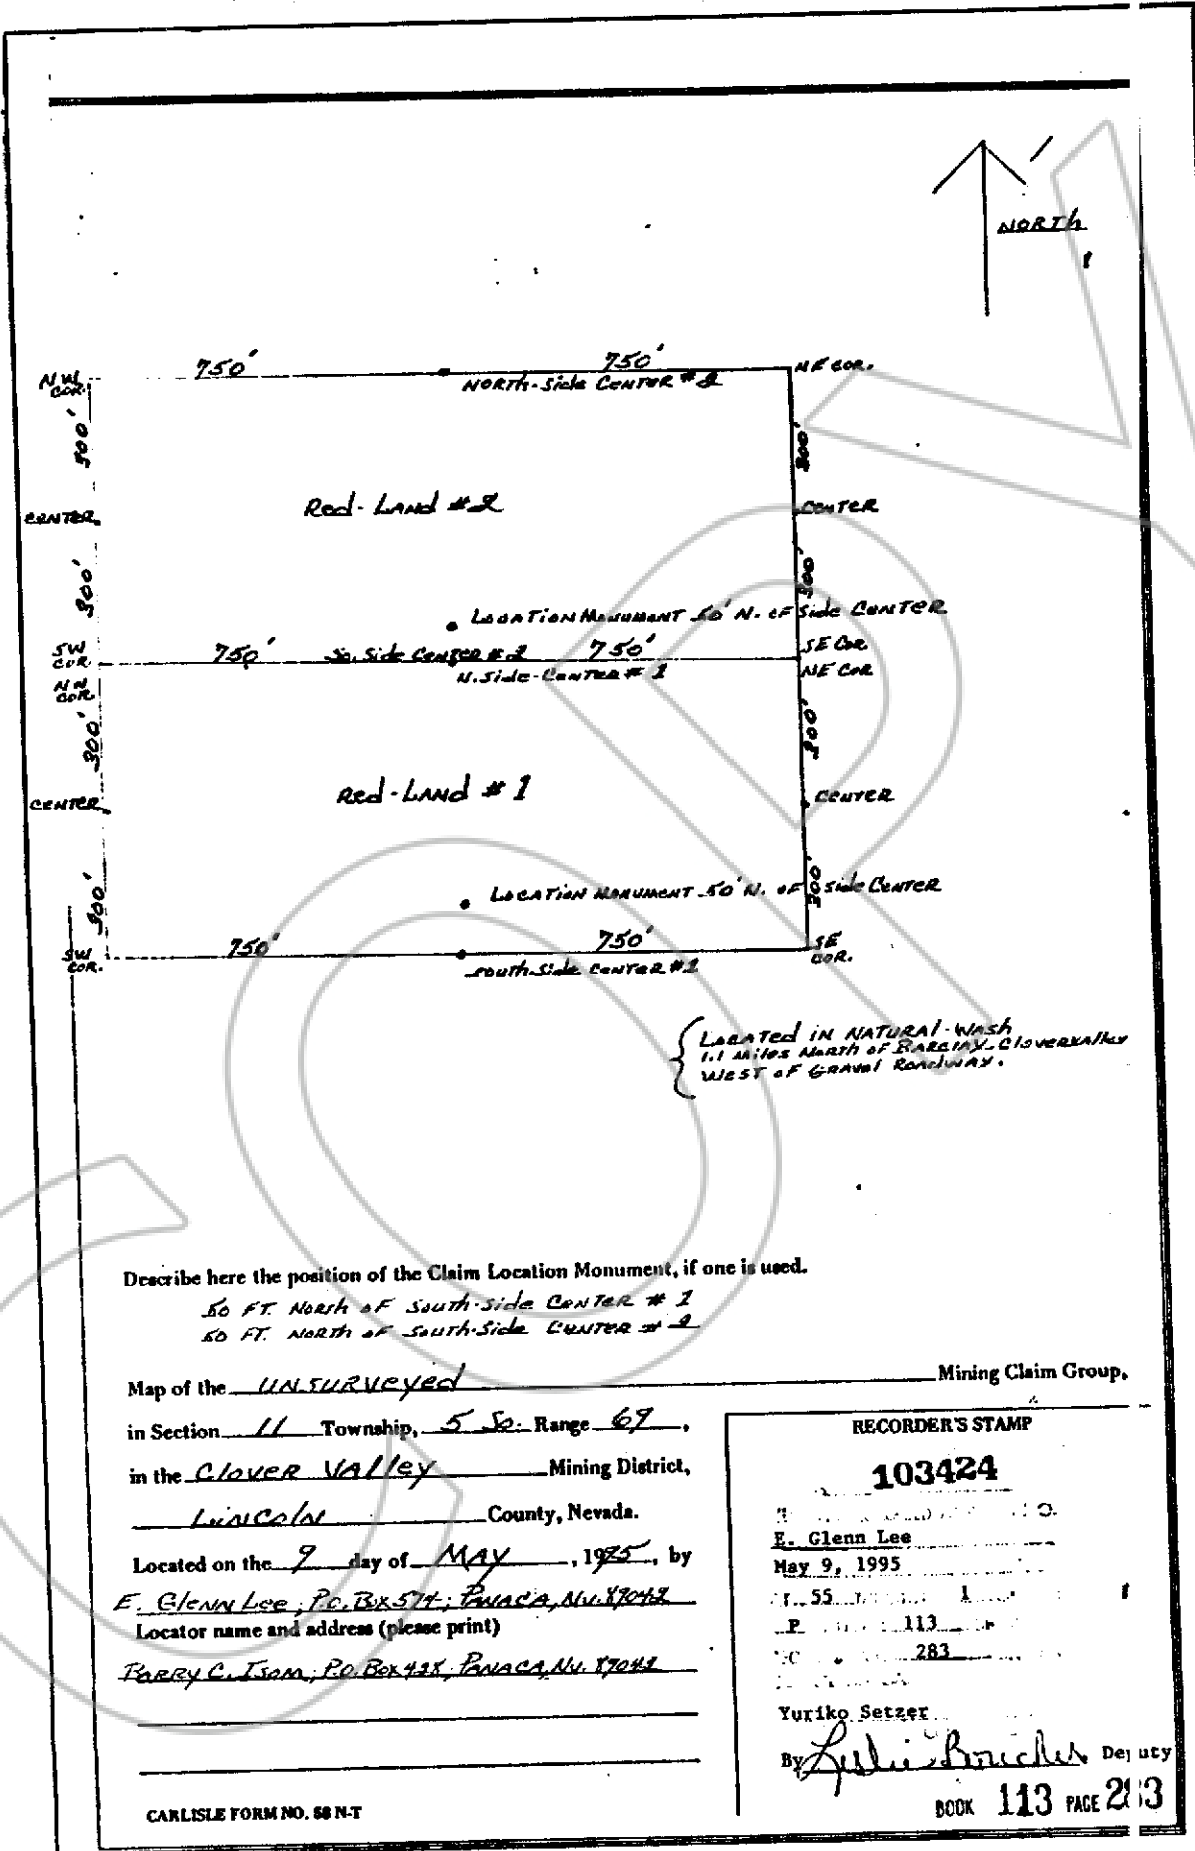 NORTH
750' 750'
NW COR. NE COR.
NORTH-Side CENTER #2
300' 300'
Red-LAND #2
CENTER CENTER
300' 300'
LOCATION MONUMENT 50' N. OF Side CENTER
SW COR 750' So. Side CENTER #2 750' SE COR
NW COR. N. Side-CENTER #1 NE COR
300' 300'
Red-LAND #1
CENTER CENTER
300' 300'
LOCATION MONUMENT 50' N. OF Side CENTER
SW COR. 750' 750' SE COR.
South-Side CENTER #1
LOCATED IN NATURAL-WASH
1.1 Miles North of BARCLAY-Clovervalley
WEST OF GRAVEL Roadway.
Describe here the position of the Claim Location Monument, if one is used.
50 FT. North OF South-Side CENTER #1
50 FT. North OF South-Side CENTER #2
Map of the UNSURVEYED Mining Claim Group,
in Section 11 Township, 5 So. Range 69,
in the Clover VAlley Mining District,
LINCOLN County, Nevada.
Located on the 9 day of MAY, 1995, by
E. GLENN Lee; P.O. Box 574; PANACA, Nv. 89042
Locator name and address (please print)
PARRY C. ISOM; P.O. Box 428, PANACA, Nv. 89042
CARLISLE FORM NO. 58 N-T
RECORDER'S STAMP
103424
E. Glenn Lee
May 9, 1995
55 1
P 113
283
Yuriko Setzer
By Leslie Boucher Deputy
BOOK 113 PAGE 283
COPY